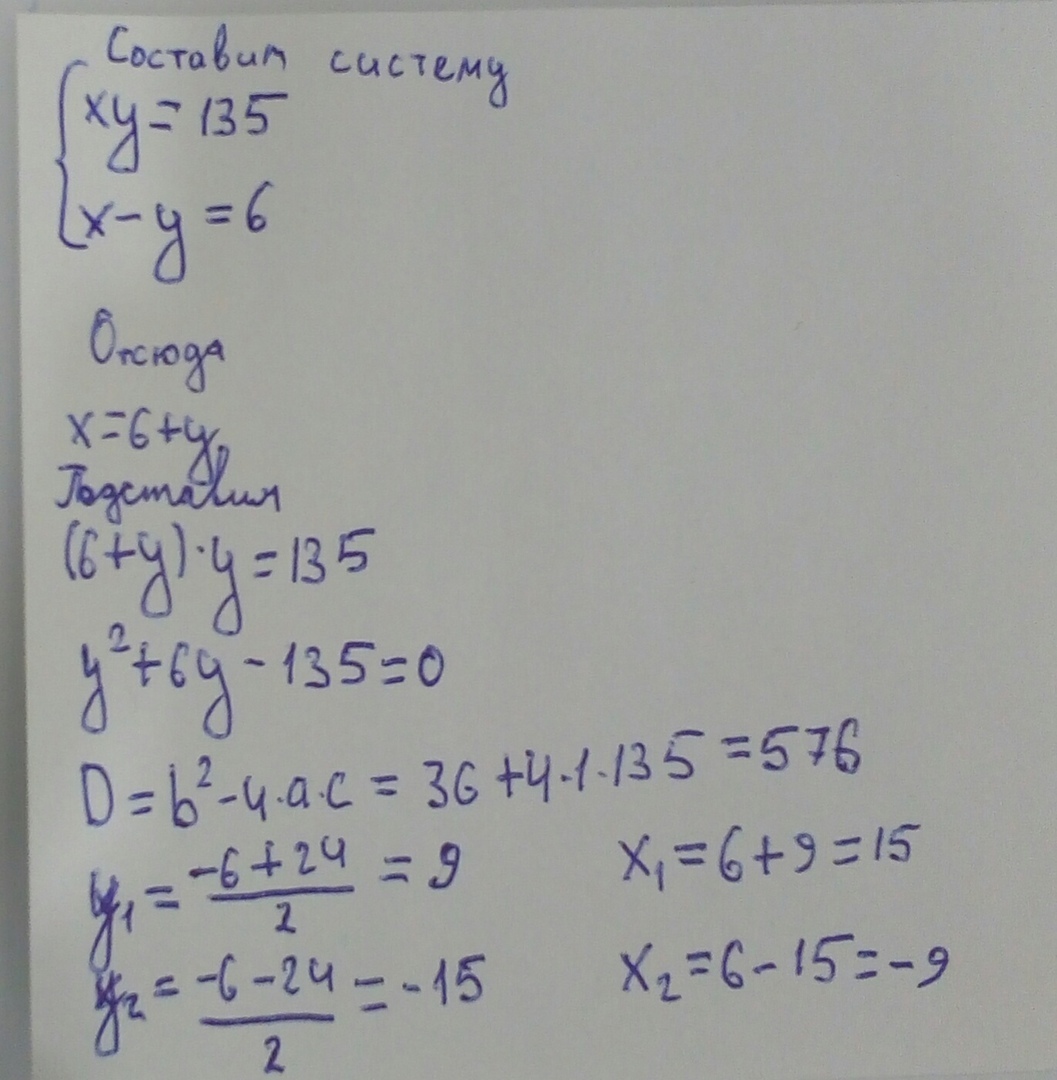 Составим систему
xy = 135
x - y = 6
Отсюда
x = 6 + y
Подставим
(6+y)·y = 135
y² + 6y - 135 = 0
D = b² - 4·a·c = 36 + 4·1·135 = 576
y₁ = (-6 + 24)/2 = 9 x₁ = 6 + 9 = 15
y₂ = (-6 - 24)/2 = -15 x₂ = 6 - 15 = -9